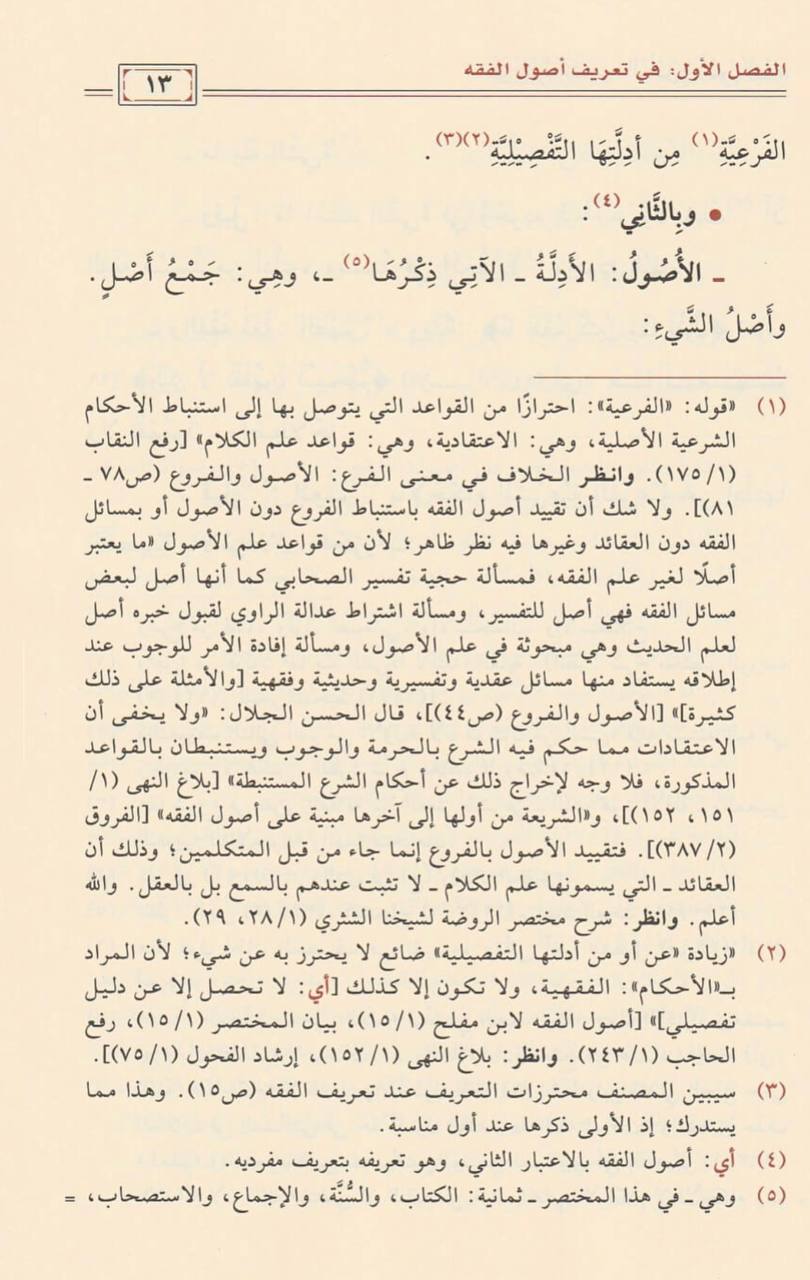 الفصل الأول: في تعريف أصول الفقه
١٣
الفَرْعِيَّةِ(١) مِن أدِلَّتِهَا التَّفْصِيْلِيَّةِ(٢)(٣).
• وبِالثَّانِي(٤):
ـ الأُصُولُ: الأَدِلَّةُ ـ الآتِي ذِكْرُهَا(٥) ـ، وهِي: جَمْعُ أَصْلٍ.
وأَصْلُ الشَّيءِ:
(١) «قوله: «الفرعية»: احترازًا من القواعد التي يتوصل بها إلى استنباط الأحكام
الشرعية الأصلية، وهي: الاعتقادية، وهي: قواعد علم الكلام» [رفع النقاب
(١٧٥/١). وانظر الخلاف في معنى الفرع: الأصول والفروع (ص٧٨ ـ
٨١)]. ولا شك أن تقييد أصول الفقه باستنباط الفروع دون الأصول أو بمسائل
الفقه دون العقائد وغيرها فيه نظر ظاهر؛ لأن من قواعد علم الأصول «ما يعتبر
أصلًا لغير علم الفقه، فمسألة حجية تفسير الصحابي كما أنها أصل لبعض
مسائل الفقه فهي أصل للتفسير، ومسألة اشتراط عدالة الراوي لقبول خبره أصل
لعلم الحديث وهي مبحوثة في علم الأصول، ومسألة إفادة الأمر للوجوب عند
إطلاقه يستفاد منها مسائل عقدية وتفسيرية وحديثية وفقهية [والأمثلة على ذلك
كثيرة]» [الأصول والفروع (ص٤٤)]، قال الحسن الجلال: «ولا يخفى أن
الاعتقادات مما حكم فيه الشرع بالحرمة والوجوب ويستنبطان بالقواعد
المذكورة، فلا وجه لإخراج ذلك عن أحكام الشرع المستنبطة» [بلاغ النهى (١/
١٥١، ١٥٢)]، و«الشريعة من أولها إلى آخرها مبنية على أصول الفقه» [الفروق
(٣٨٧/٢)]. فتقييد الأصول بالفروع إنما جاء من قبل المتكلمين؛ وذلك أن
العقائد ـ التي يسمونها علم الكلام ـ لا تثبت عندهم بالسمع بل بالعقل. والله
أعلم. وانظر: شرح مختصر الروضة لشيخنا الشثري (٢٨/١، ٢٩).
(٢) «زيادة «عن أو من أدلتها التفصيلية» ضائع لا يحترز به عن شيء؛ لأن المراد
بـ«الأحكام»: الفقهية، ولا تكون إلا كذلك [أي: لا تحصل إلا عن دليل
تفصيلي]» [أصول الفقه لابن مفلح (١٥/١)، بيان المختصر (١٥/١)، رفع
الحاجب (٢٤٣/١). وانظر: بلاغ النهى (١٥٢/١)، إرشاد الفحول (٧٥/١)].
(٣) سيبين المصنف محترزات التعريف عند تعريف الفقه (ص١٥). وهذا مما
يستدرك؛ إذ الأولى ذكرها عند أول مناسبة.
(٤) أي: أصول الفقه بالاعتبار الثاني، وهو تعريفه بتعريف مفرديه.
(٥) وهي ـ في هذا المختصر ـ ثمانية: الكتاب، والسُّنَّة، والإجماع، والاستصحاب، =